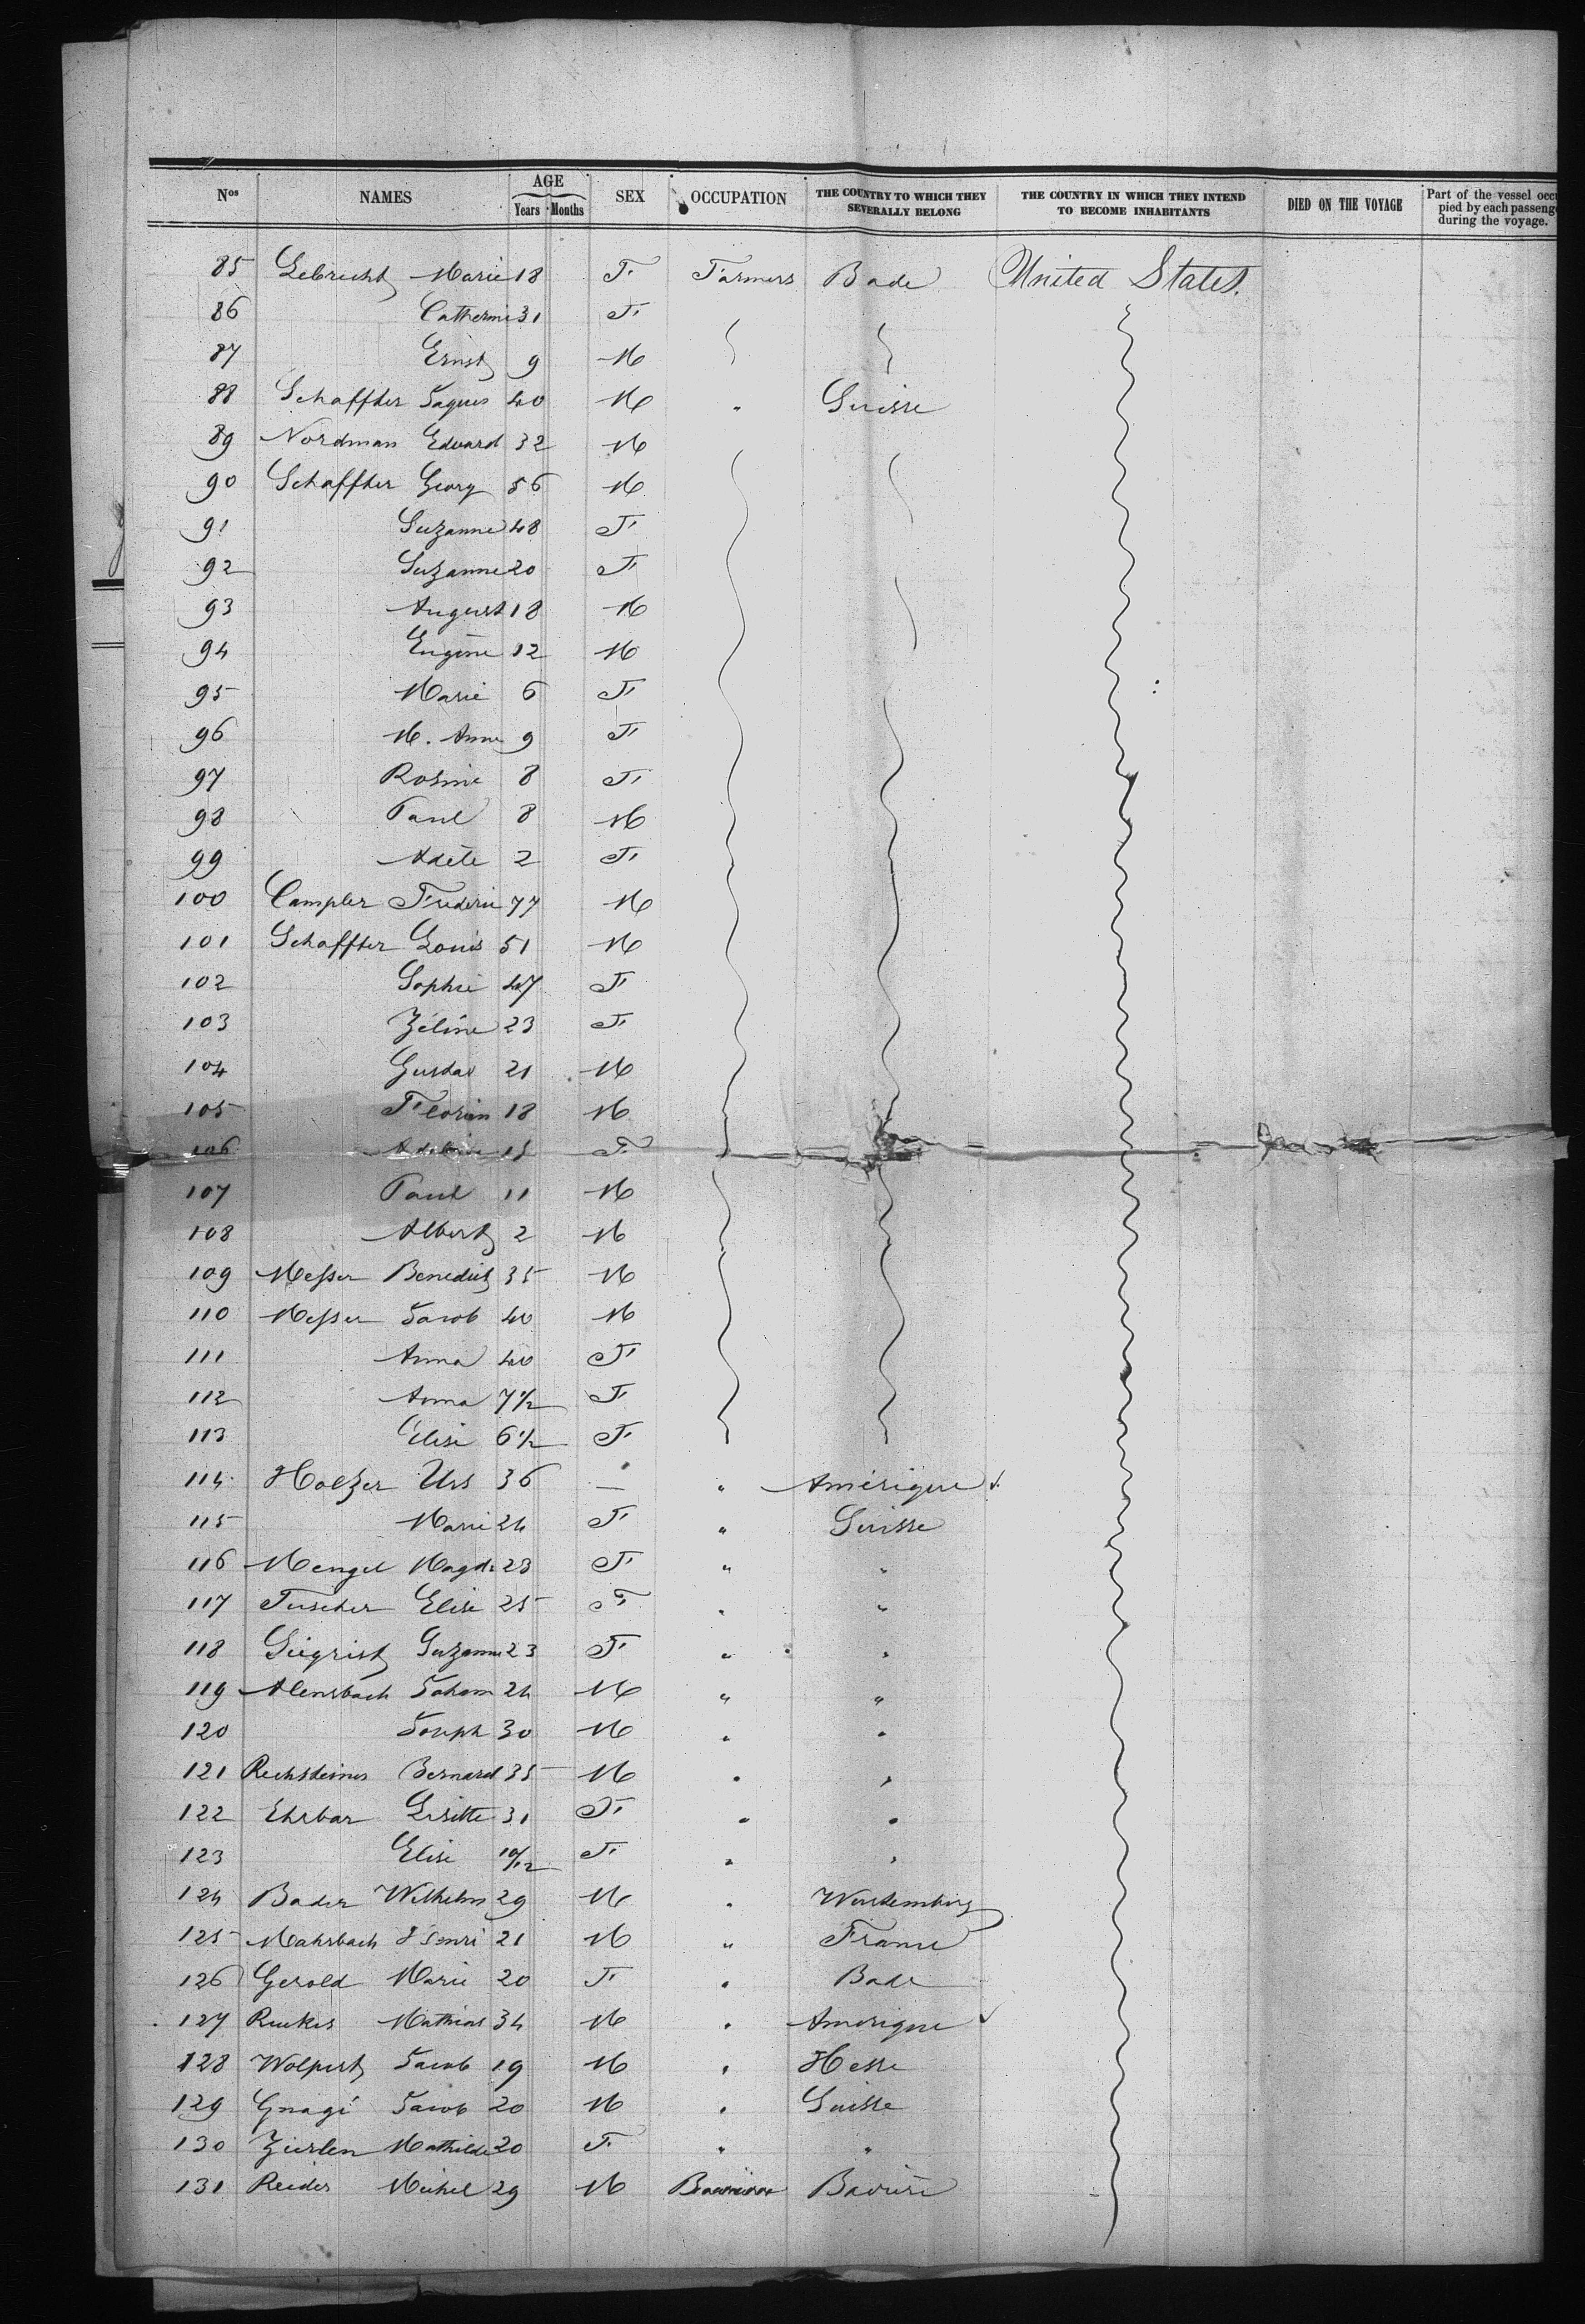 Nos NAMES AGE Years Months SEX OCCUPATION THE COUNTRY TO WHICH THEY SEVERALLY BELONG THE COUNTRY IN WHICH THEY INTEND TO BECOME INHABITANTS DIED ON THE VOYAGE Part of the vessel occu pied by each passenge during the voyage.
85 Lebrecht Marie 18 F Farmers Bade United States.
86 Catherine 31 F
87 Ernst 9 M
88 Schaffter Jaques 40 M " Suisse
89 Nordman Edward 32 M
90 Schaffter Georg 56 M
91 Suzanne 48 F
92 Suzanne 20 F
93 August 18 M
94 Eugène 12 M
95 Marie 6 F
96 M. Anne 9 F
97 Rosine 8 F
98 Paul 8 M
99 Adèle 2 F
100 Campler Frederic 77 M
101 Schaffter Louis 51 M
102 Sophie 47 F
103 Zéline 23 F
104 Gustav 21 M
105 Florian 18 M
106 15 F
107 Paul 11 M
108 Albert 2 M
109 Messer Benedict 35 M
110 Messer Jacob 40 M
111 Anna 40 F
112 Anna 7 1/2 F
113 Elise 6 1/2 F
114 Holzer Urs 36 — " Amérique
115 Marie 24 F " Suisse
116 Mengel Magd. 23 F " "
117 Tuscher Elise 25 F " "
118 Siegrist Suzanne 23 F " "
119 Alensbach Johann 24 M " "
120 Joseph 30 M " "
121 Rechsteiner Bernard 35 M " "
122 Ehrbar Lisette 31 F " "
123 Elise 10/12 F " "
124 Bader Wilhelm 29 M " Wurtemburg
125 Mahrbach Henri 21 M " France
126 Gerold Marie 20 F " Bade
127 Mathias 34 M " Amerique
128 Wolpert Jacob 19 M " Hesse
129 Gnagi Jacob 20 M " Suisse
130 Zierlen Mathilde 20 F " "
131 Reider Michel 29 M Bavière